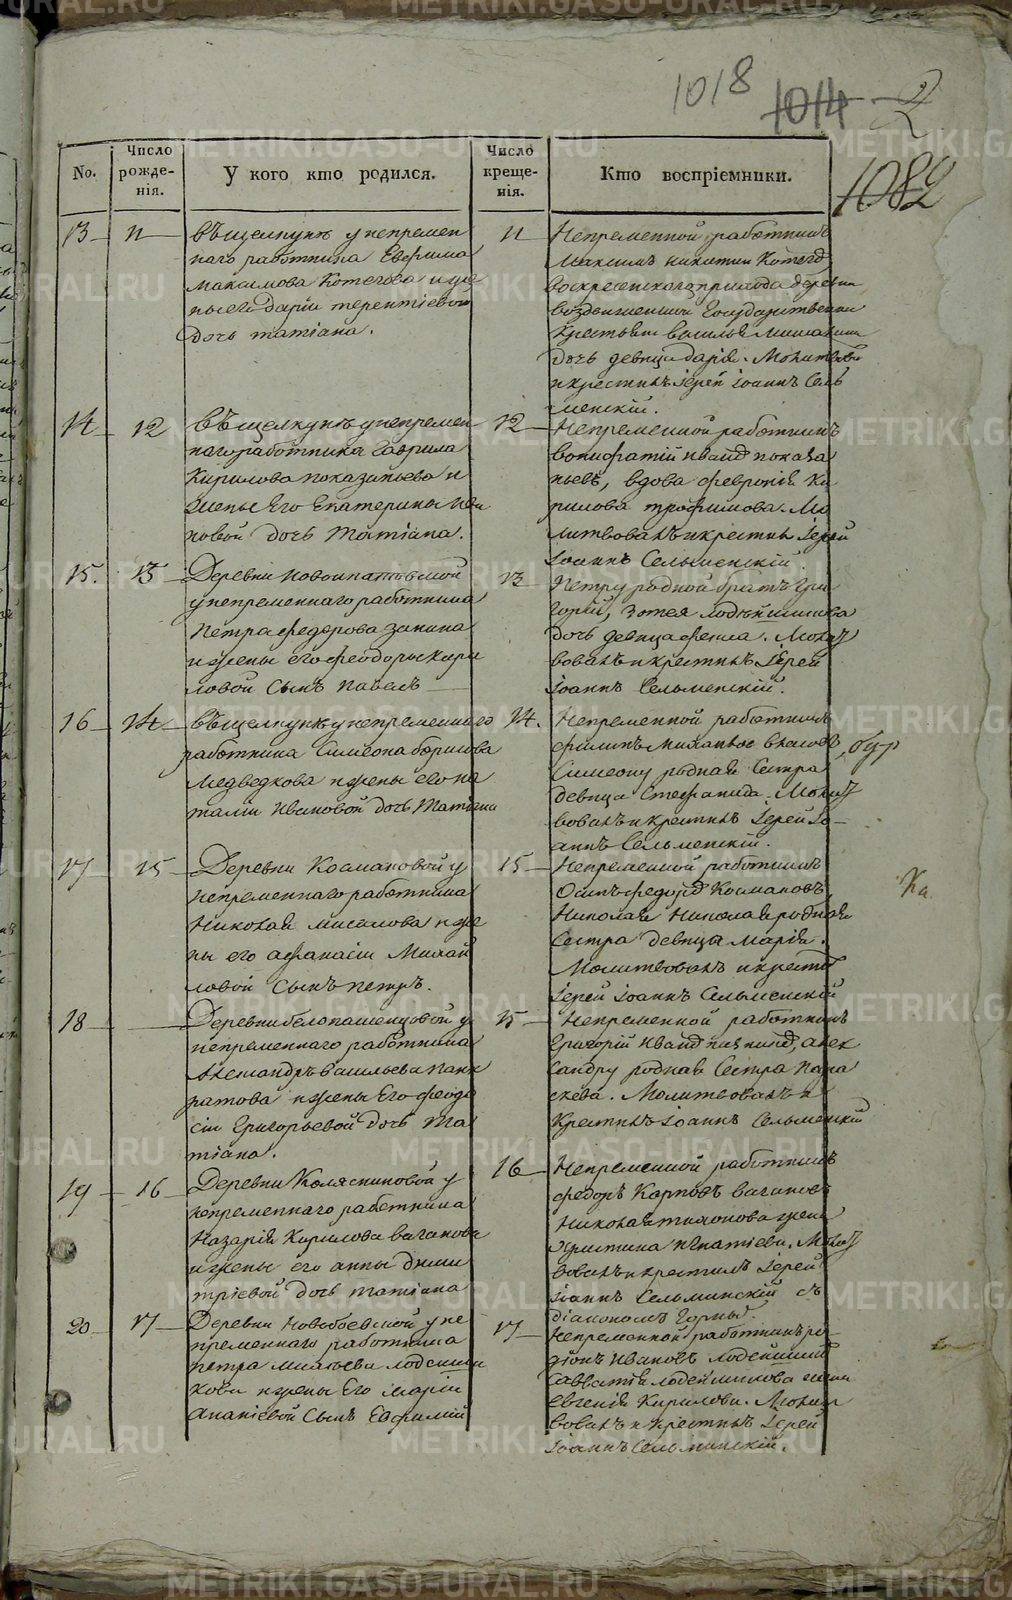 1018 1014 2
1082
No.
Число рожде-нія.
У кого кто родился.
Число креще-нія.
Кто воспріемники.
13 11
въ щелкунѣ у непремен
наго работника Евфима
максимова Котегова и же
ны его Даріи терентіевой
дочь татіана.
11
Непременной работникъ
Максимъ никитин Котегов
воскресенскаго прихода деревни
воздвиженской Государственнаго
крестьянина василья
дочь девица дарія. Молитвовалъ
и крестилъ іерей іоаннъ Сель
менскій.
14 12
въ щелкунѣ у непремен
наго работника Гаврила
Кирилова показаньева и
жены Его Екатерины Ива
новой дочь Татіана.
12
Непременной работникъ
вонифатій иванов показа
ньевъ, вдова февронія Ки
рилова трофимова. Мо
литвовалъ и крестилъ Іерей
Іоаннъ Сельменскій.
15. 13
Деревни новоипатовской
у непременнаго работника
Петра федорова занина
и жены его феодоры кири
ловой сынъ павелъ
13
Петру родной братъ гри
горей, зотея лодейщикова
дочь девица фекла. Молит
вовалъ и крестилъ Іерей
Іоаннъ Сельменскій.
16 14
въ щелкунѣ у непременнаго
работника Симеона борисова
Медведкова и жены его на
таліи Ивановой дочь Татіана
14.
Непременной работникъ
филипъ
Симеону родная Сестра
девица Стефанида. Молит
вовалъ и крестилъ Іерей Іо-
аннъ Сельменскій.
17 15
Деревни Космаковой у
непременнаго работника
Николая и же
ны его афанасіи Михай
ловой Сынъ петръ.
15
Непременной работникъ
Осипъ федоров Космаковъ,
Николая Николая родная
Сестра девица Марія.
Молитвовалъ и крестил
Іерей іоаннъ Сельменскій
Ка
18
Деревни белопашенцовой у
непременнаго работника
Александръ васильева панк
ратова и жены Его феодо
сіи Григорьевой дочь Та
тіана.
15
Непременной работникъ
Григорій Иванов, алек
сандру родная Сестра пара
скева. Молитвовалъ и
крестилъ іоаннъ Сельменскій
19 16
Деревни Коляскиковой у
непременнаго работника
Назарія Кирилова ваганова
и жены его анны дими
тріевой дочь татіана
16
Непременной работникъ
федоръ Карповъ вагановъ
Николая тихонова жена
Христина игнатіева. Молит
вовалъ и крестилъ Іерей
іоаннъ Сельминскій съ
діакономъ Горным.
20 17
Деревни новобоевской у не
пременнаго работника
петра лодейщи
кова и жены Его Маріи
Ананіевой Сынъ Евфимій
17
Непременной работникъ ро-
діонъ Ивановъ лодейщиков
Савватія лодейщикова жена
Евгенія Кирилова. Молит
вовалъ и Крестилъ Іерей
іоаннъ Сельминскій.
METRIKI.GASO-URAL.RU